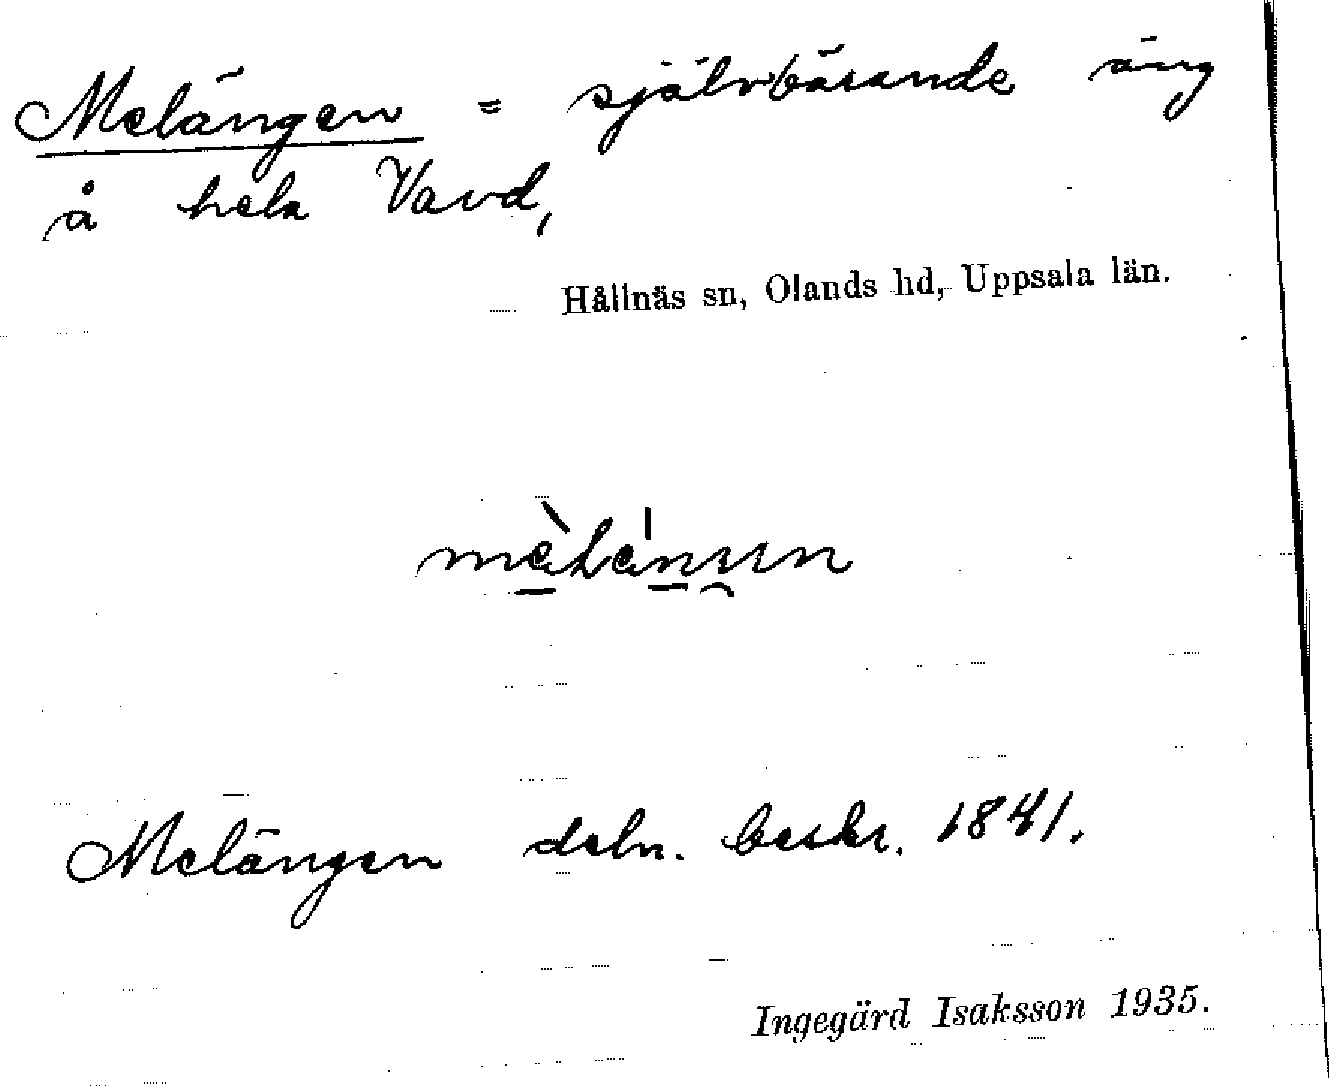 Melängen = självbärande äng
å hela Vavd,
Hållnäs sn, Olands hd, Uppsala län.
Melängen deln. beskr. 1841.
Ingegärd Isaksson 1935.